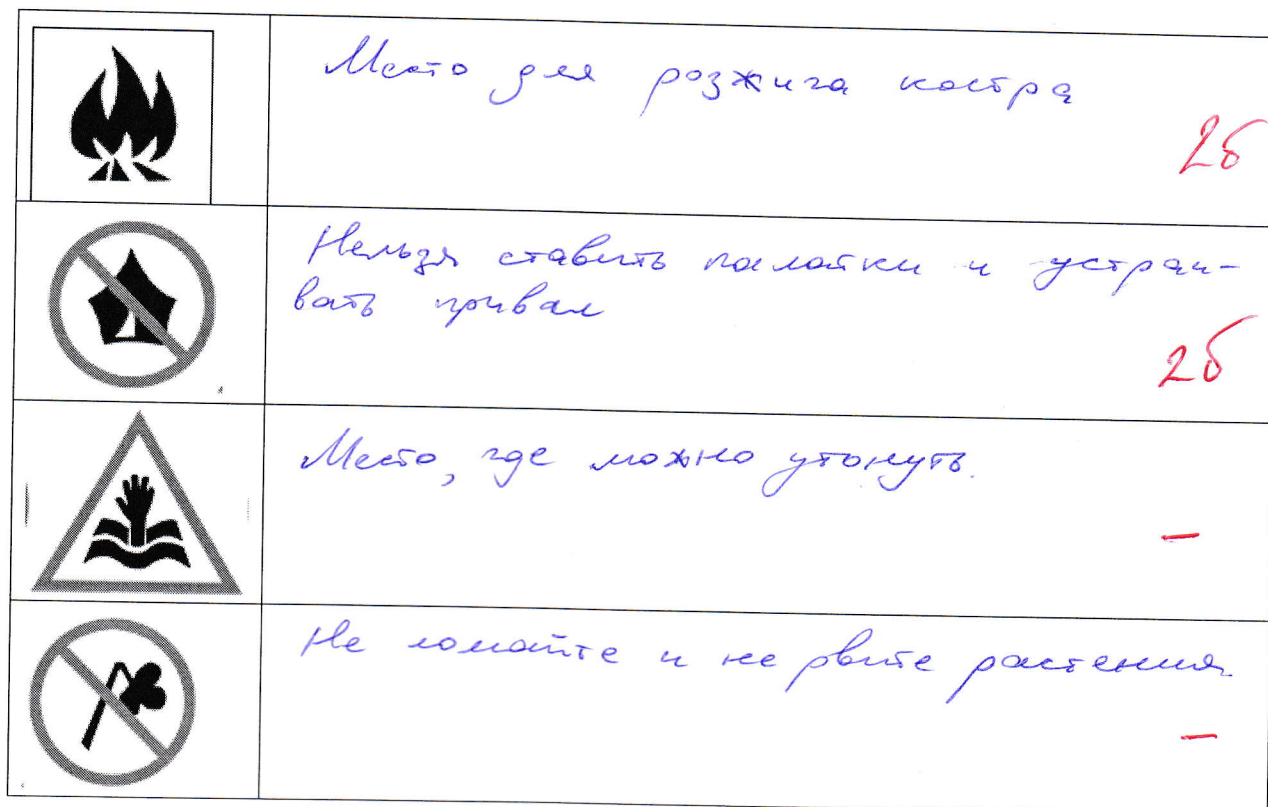 Место для розжига костра
2б
Нельзя ставить палатки и устраи-
вать привал
2б
Место, где можно утонуть.
–
Не ломайте и не рвите растения
–